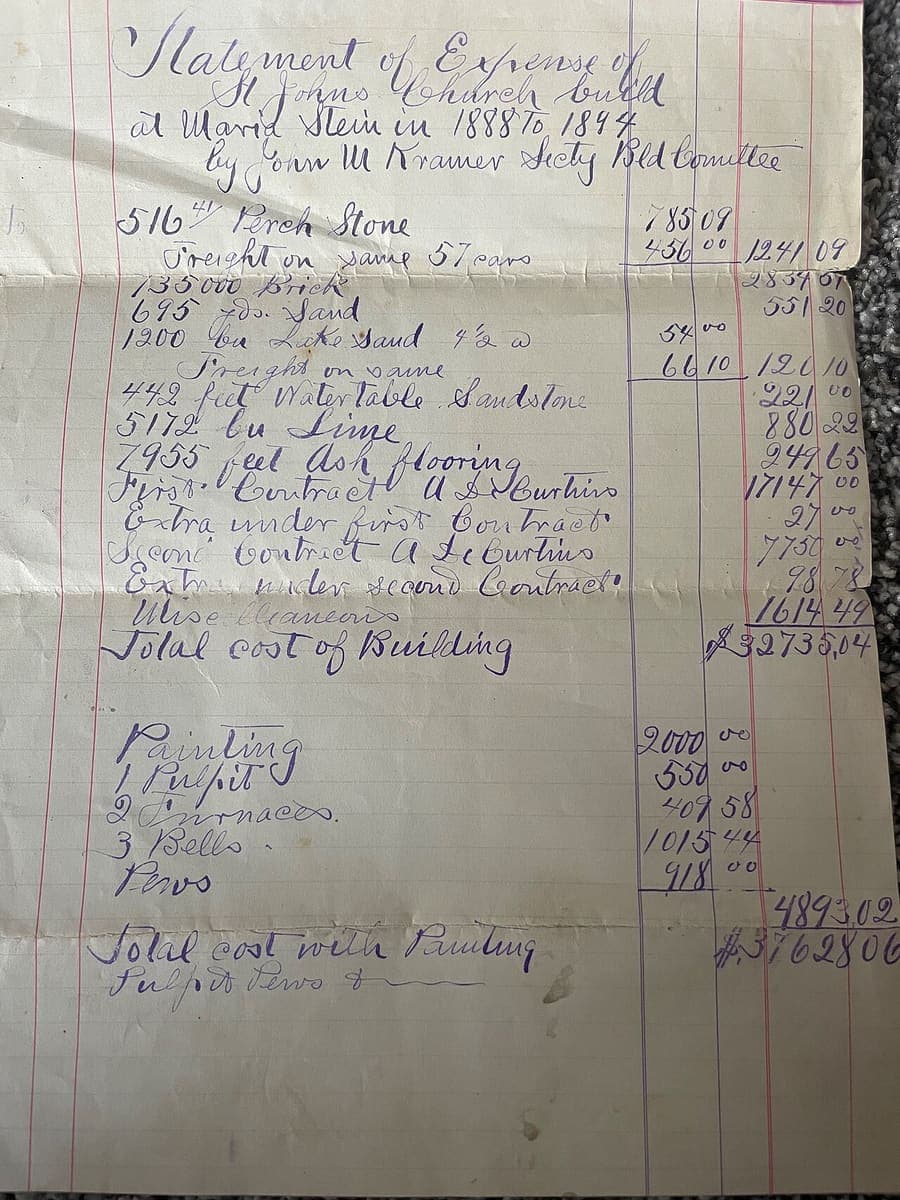 Statement of Expense of
St Johns Church build
at Maria Stein in 1888 To 1894
by John M Kramer Secty Bld Comittee
516 41/ Perch Stone 785 09
Freight on same 57 cars 456 00 1241 09
735000 Brick 2834 51
695 yds. Sand 551 20
1200 bu Lake Sand 4 1/2 a 54 00
Freight on same 66 10 120 10
442 feet Water Table Sandstone 221 00
5172 bu Lime 880 22
7955 feet Ash flooring 249 65
First Contract A De Curtins 17147 00
Extra under first Contract 27 00
Second Contract A De Curtins 7750 00
Extra under second Contract 98 78
Miscelleaneous 1614 49
Total cost of Building $32735,04
Painting 2000 00
1 Pulpit 550 00
2 Furnaces. 409 58
3 Bells 1015 44
Pews 918 00
4893,02
Total cost with Painting $.37628 06
Pulpit Pews &